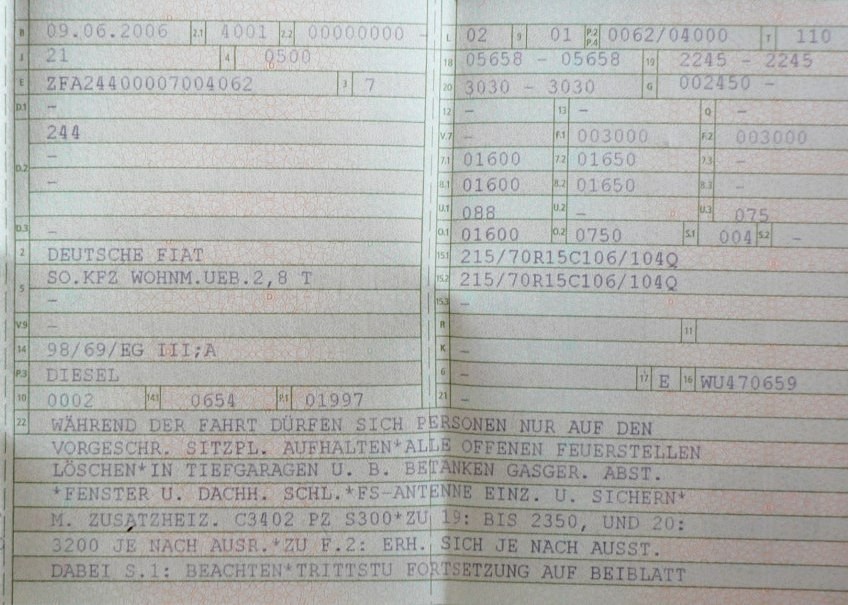 B 09.06.2006 2.1 4001 2.2 00000000 -
J 21 4 0500
E ZFA24400007004062 3 7
D.1 -
244
-
D.2
-
D.3 -
2 DEUTSCHE FIAT
SO.KFZ WOHNM.UEB.2,8 T
5 -
V.9 -
14 98/69/EG III;A
P.3 DIESEL
10 0002 14.1 0654 P.1 01997
L 02 9 01 P.2 P.4 0062/04000 T 110
18 05658 - 05658 19 2245 - 2245
20 3030 - 3030 G 002450 -
12 - 13 - Q -
V.7 - F.1 003000 F.2 003000
7.1 01600 7.2 01650 7.3 -
8.1 01600 8.2 01650 8.3 -
U.1 088 U.2 - U.3 075
O.1 01600 O.2 0750 S.1 004 S.2 -
15.1 215/70R15C106/104Q
15.2 215/70R15C106/104Q
15.3 -
R 11
K -
6 - 17 E 16 WU470659
21 -
22 WÄHREND DER FAHRT DÜRFEN SICH PERSONEN NUR AUF DEN
VORGESCHR. SITZPL. AUFHALTEN*ALLE OFFENEN FEUERSTELLEN
LÖSCHEN*IN TIEFGARAGEN U. B. BETANKEN GASGER. ABST.
*FENSTER U. DACHH. SCHL.*FS-ANTENNE EINZ. U. SICHERN*
M. ZUSATZHEIZ. C3402 PZ S300*ZU 19: BIS 2350, UND 20:
3200 JE NACH AUSR.*ZU F.2: ERH. SICH JE NACH AUSST.
DABEI S.1: BEACHTEN*TRITTSTU FORTSETZUNG AUF BEIBLATT